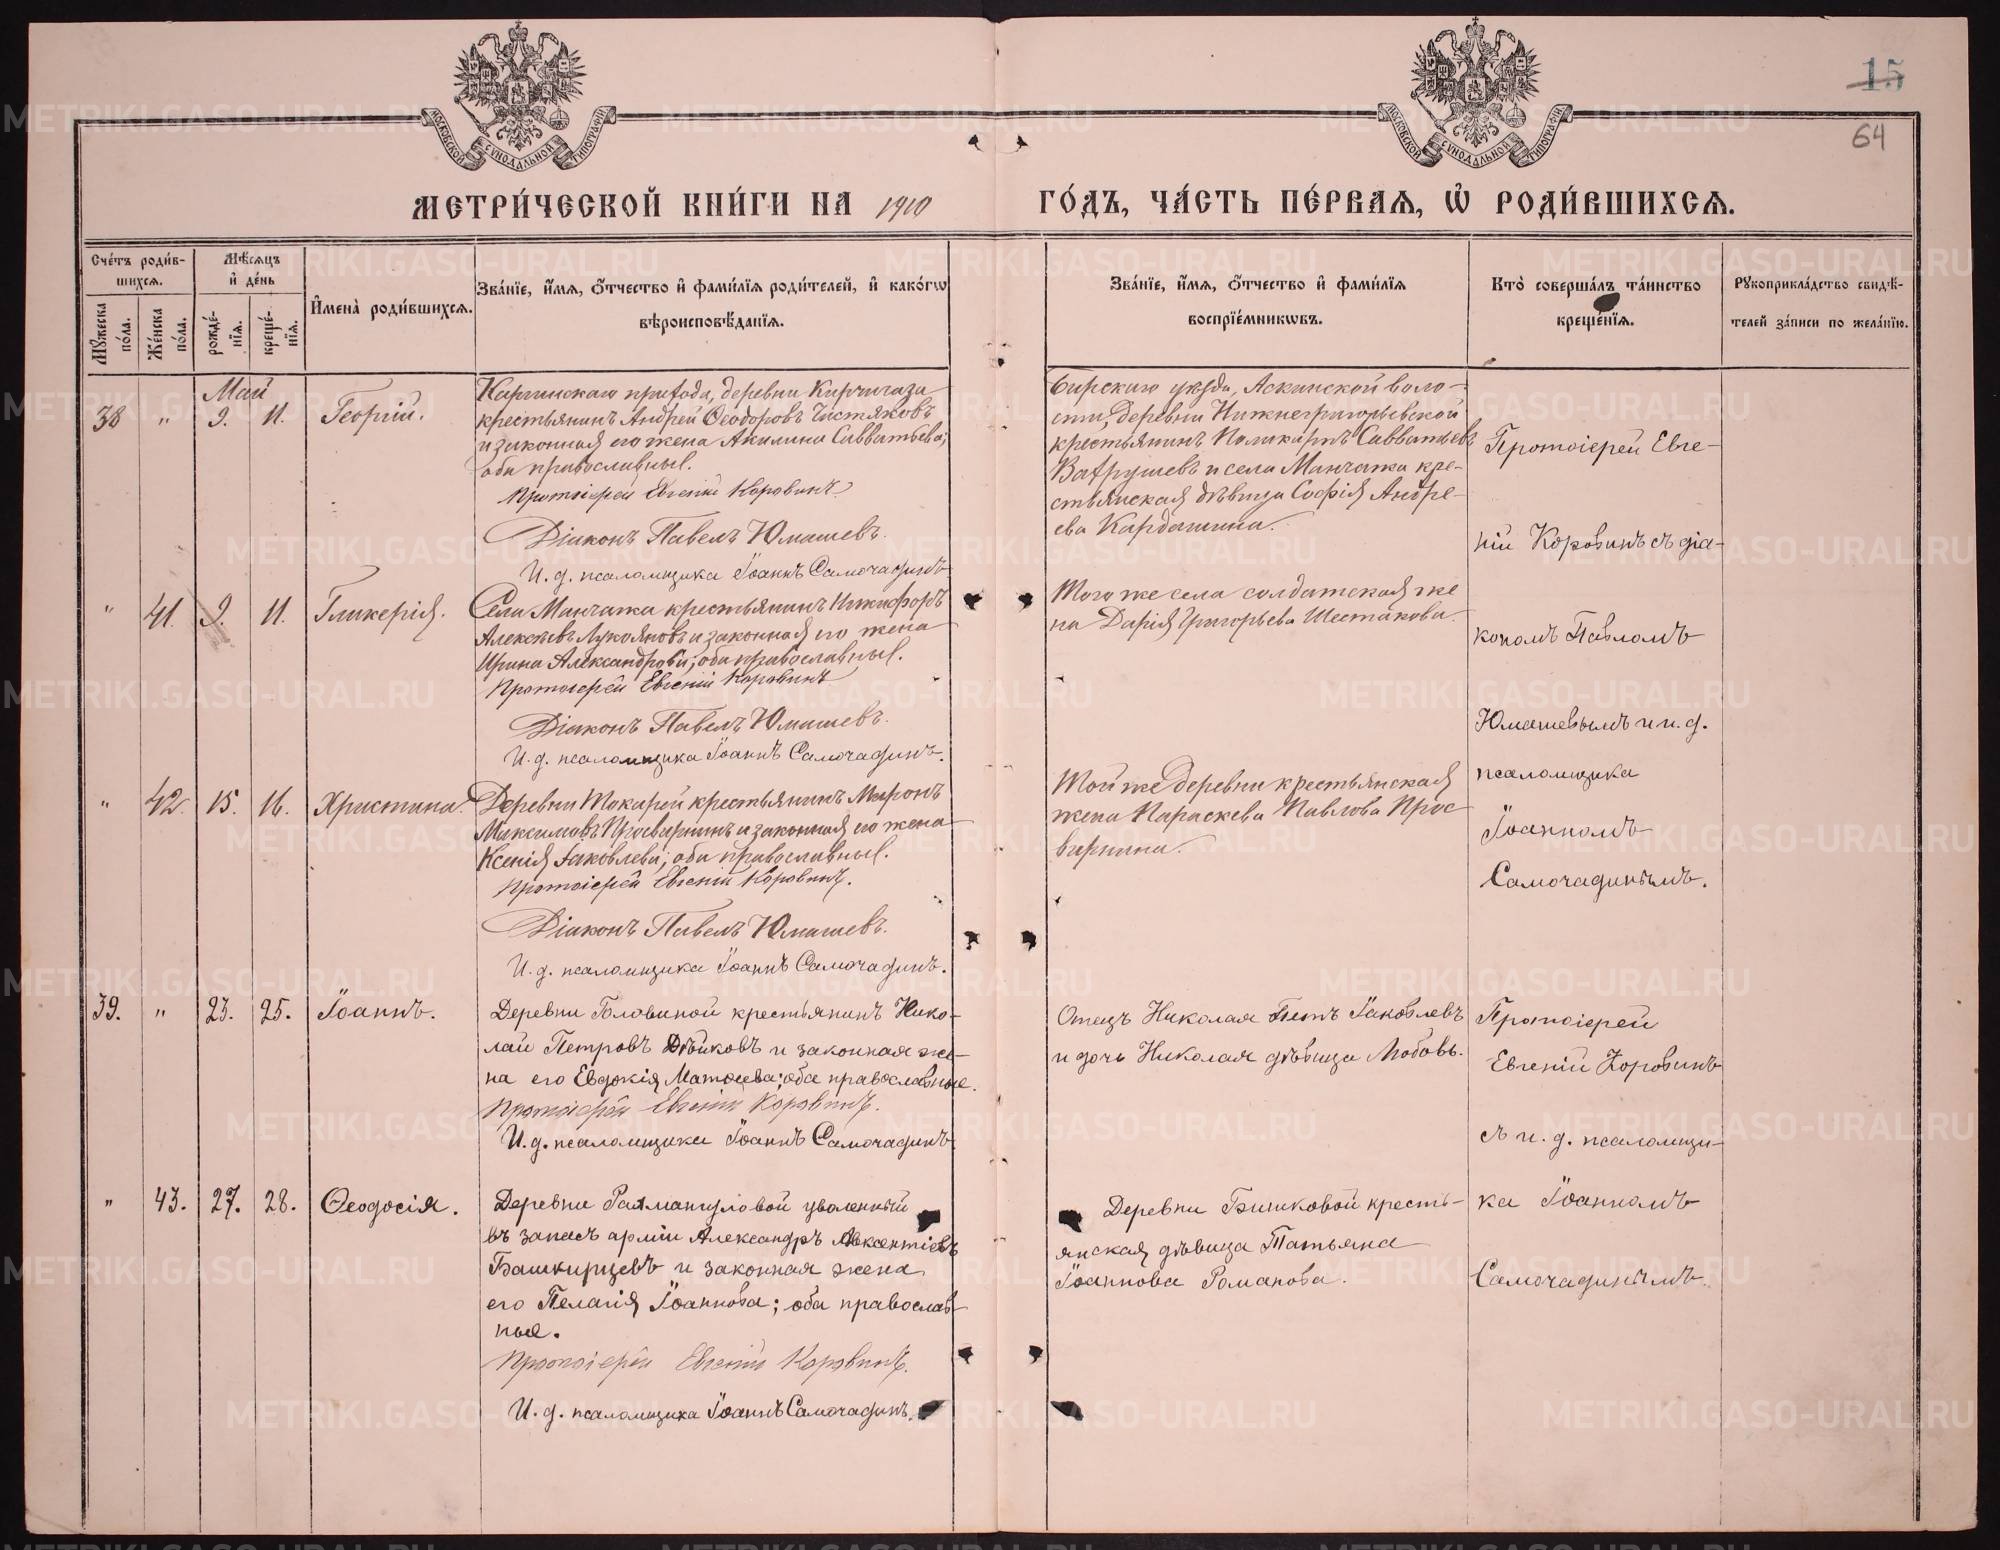 МОСКОВСКОЙ СѴНОДАЛЬНОЙ ТИПОГРАФІИ.
МОСКОВСКОЙ СѴНОДАЛЬНОЙ ТИПОГРАФІИ.
15
64
МЕТРИ́ЧЕСКОЙ КНИ́ГИ НА 1910 ГО́ДЪ, ЧА́СТЬ ПЕ́РВАѦ, Ѡ҆ РОДИ́ВШИХСѦ.
Сче́тъ роди́в-
шихсѧ.
Мꙋ́жеска по́ла.
Же́нска по́ла.
Мѣ́сѧцъ
и҆ де́нь
рожде́-
нїѧ.
креще́-
нїѧ.
И҆мена̀ роди́вшихсѧ.
Зва́нїе, и҆́мѧ, ѻ҆́тчество и҆ фами́лїѧ роди́телей, и҆ како́гѡ
вѣроисповѣ́данїѧ.
Зва́нїе, и҆́мѧ, ѻ҆́тчество и҆ фами́лїѧ
воспрїе́мникѡвъ.
Кто̀ соверша́лъ та́инство
креще́нїѧ.
Рꙋкоприкла́дство свидѣ́-
телей за́писи по жела́нїю.
Май
38 " 9. 11. Георгій.
Каргинскаго прихода, деревни Кирчигаза
крестьянинъ Андрей Ѳеодоровъ Чистяковъ
и законная его жена Акилина Савватьева;
оба православные.
Протоіерей Евгеній Коровинъ
Діаконъ Павелъ Юмашевъ.
И. д. псаломщика Іоаннъ Самочадинъ
Бирскаго уѣзда, Аскинской воло-
сти, деревни Нижнегригорьевской
крестьянинъ Поликарпъ Савватьевъ
Вахрушевъ и села Манчажа кре-
стьянская дѣвица Софія Андре-
ева Кардашина.
Протоіерей Евге-
ній Коровинъ съ діа-
кономъ Павломъ
Юмашевымъ и и. д.
псаломщика
Іоанномъ
Самочадинымъ.
" 41. 9. 11. Гликерія.
Села Манчажа крестьянинъ Никифоръ
Алексѣевъ Лукояновъ и законная его жена
Ирина Александрова; оба православные.
Протоіерей Евгеній Коровинъ
Діаконъ Павелъ Юмашевъ.
И. д. псаломщика Іоаннъ Самочадинъ.
Того же села солдатская же
на Дарія Григорьева Шестакова.
" 42. 15. 16. Христина.
Деревни Токарей крестьянинъ Миронъ
Максимовъ Просвирнинъ и законная его жена
Ксенія Іаковлева; оба православные.
Протоіерей Евгеній Коровинъ.
Діаконъ Павелъ Юмашевъ.
И. д. псаломщика Іоаннъ Самочадинъ.
Той же деревни крестьянская
жена Параскева Павлова Прос
вирнина.
39. " 23. 25. Іоаннъ.
Деревни Головиной крестьянинъ Нико-
лай Петровъ Дѣйковъ и законная же-
на его Евдокія Матѳеева; оба православные.
Протоіерей Евгеній Коровинъ.
И. д. псаломщика Іоаннъ Самочадинъ.
Отецъ Николая Петръ Іаковлевъ
и дочь Николая дѣвица Любовь.
Протоіерей
Евгеній Коровинъ
съ и. д. псаломщи-
ка Іоанномъ
Самочадинымъ.
" 43. 27. 28. Ѳеодосія.
Деревни Рахмангуловой уволенный
въ запасъ арміи Александръ Авксентіевъ
Башкирцевъ и законная жена
его Пелагія Іоаннова; оба православ-
ные.
Протоіерей Евгеній Коровинъ.
И. д. псаломщика Іоаннъ Самочадинъ.
Деревни Бишковой кресть-
янская дѣвица Татьяна
Іоаннова Романова.
METRIKI.GASO-URAL.RU